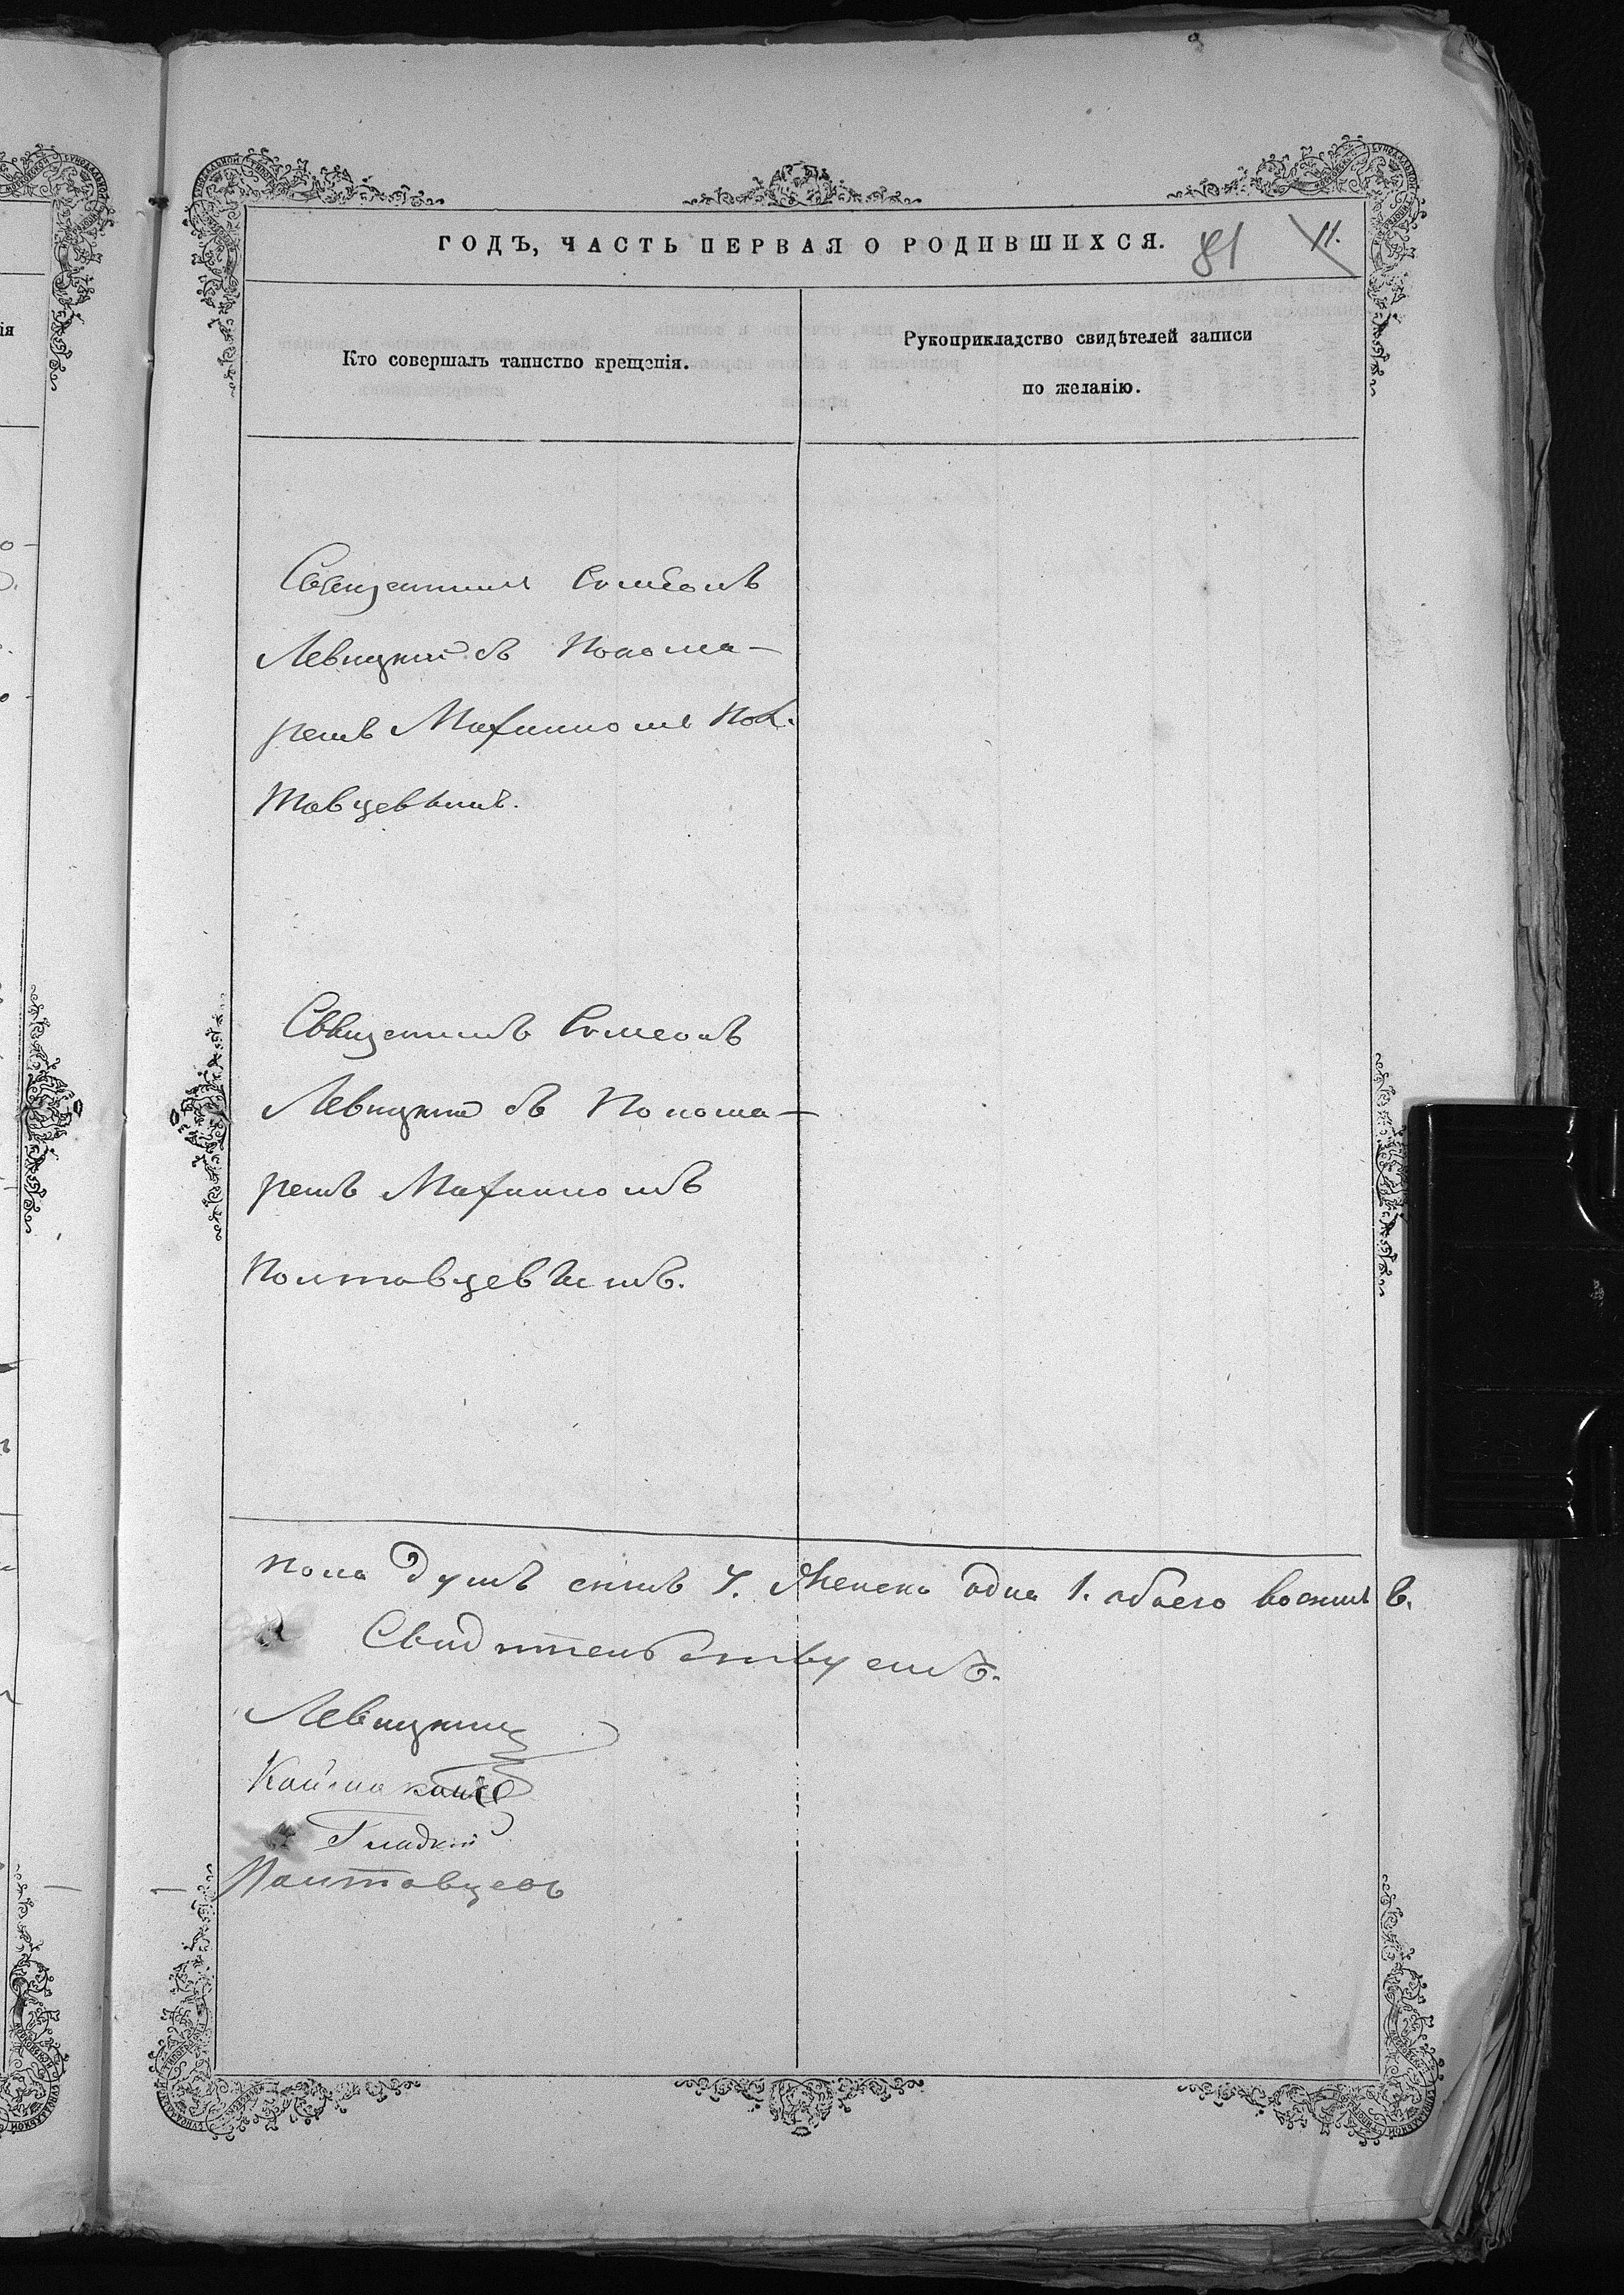 ГОДЪ, ЧАСТЬ ПЕРВАЯ О РОДИВШИХСЯ. 81 11.
Кто совершалъ таинство крещенія.
Рукоприкладство свидѣтелей записи
по желанію.
Священникъ Симеонъ
Левицкій съ Понома-
ремъ Максимомъ Пол-
тавцевымъ.
Священникъ Симеонъ
Левицкій съ Понома-
ремъ Максимомъ
Полтавцевымъ.
пола душъ семь 7. Женска одна 1. обоего восемь 8.
Свидѣтельствуемъ.
Левицкій
Гладкій
Полтавцевъ